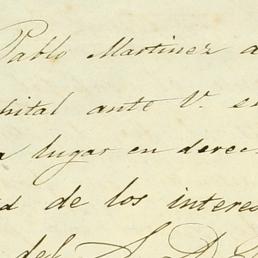 Pablo Martinez a
pital ante V. en
a lugar en derec
d de los intere
del S. D.